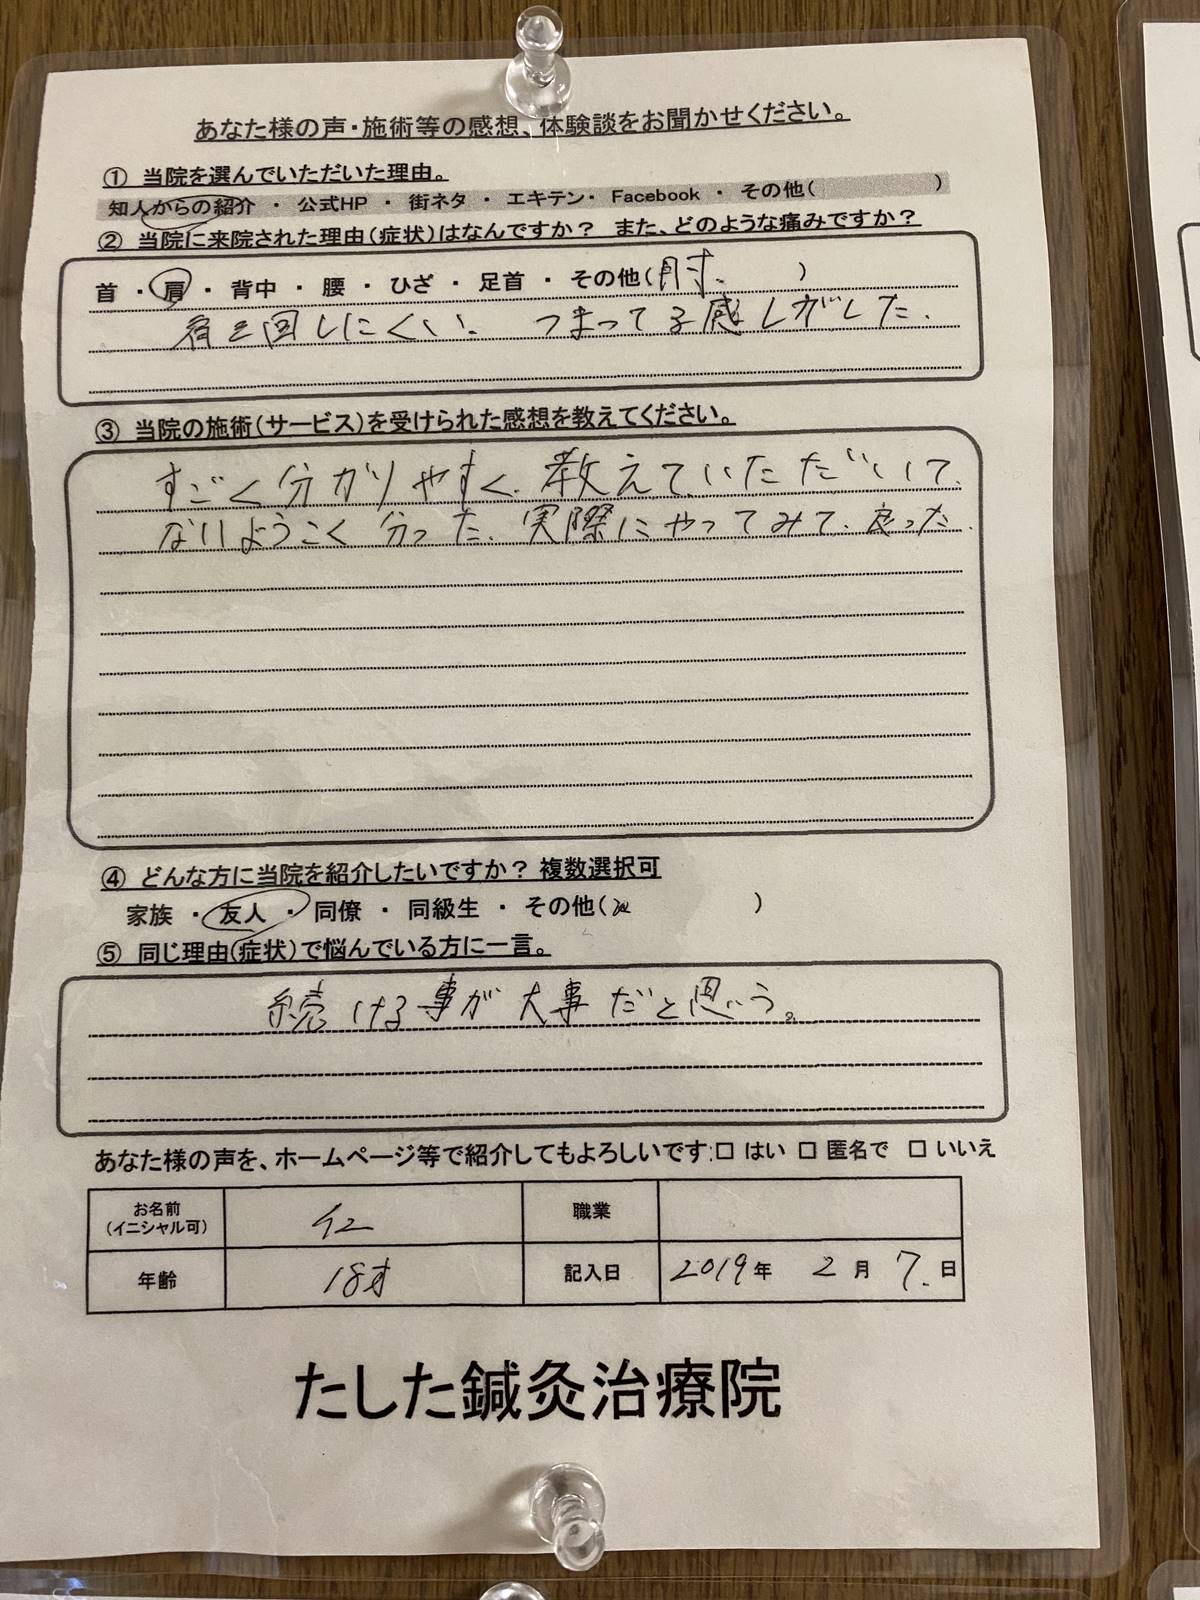 あなた様の声・施術等の感想、体験談をお聞かせください。
① 当院を選んでいただいた理由。
知人からの紹介 ・ 公式HP ・ 街ネタ ・ エキテン・ Facebook ・ その他( )
② 当院に来院された理由(症状)はなんですか？ また、どのような痛みですか？
首 ・ 肩 ・ 背中 ・ 腰 ・ ひざ ・ 足首 ・ その他(肘、 )
肩を回しにくい、 つまってる感じがした。
③ 当院の施術(サービス)を受けられた感想を教えてください。
すごく分かりやすく、教えていただいて、
ないようこく 分った、実際にやってみて、良った、
④ どんな方に当院を紹介したいですか？ 複数選択可
家族 ・ 友人 ・ 同僚 ・ 同級生 ・ その他( )
⑤ 同じ理由(症状)で悩んでいる方に一言。
続ける事が大事だと思いう。
あなた様の声を、ホームページ等で紹介してもよろしいです:□ はい □ 匿名で □ いいえ
お名前 職業
(イニシャル可)
年齢 18才 記入日 2019年 2月 7.日
たした鍼灸治療院